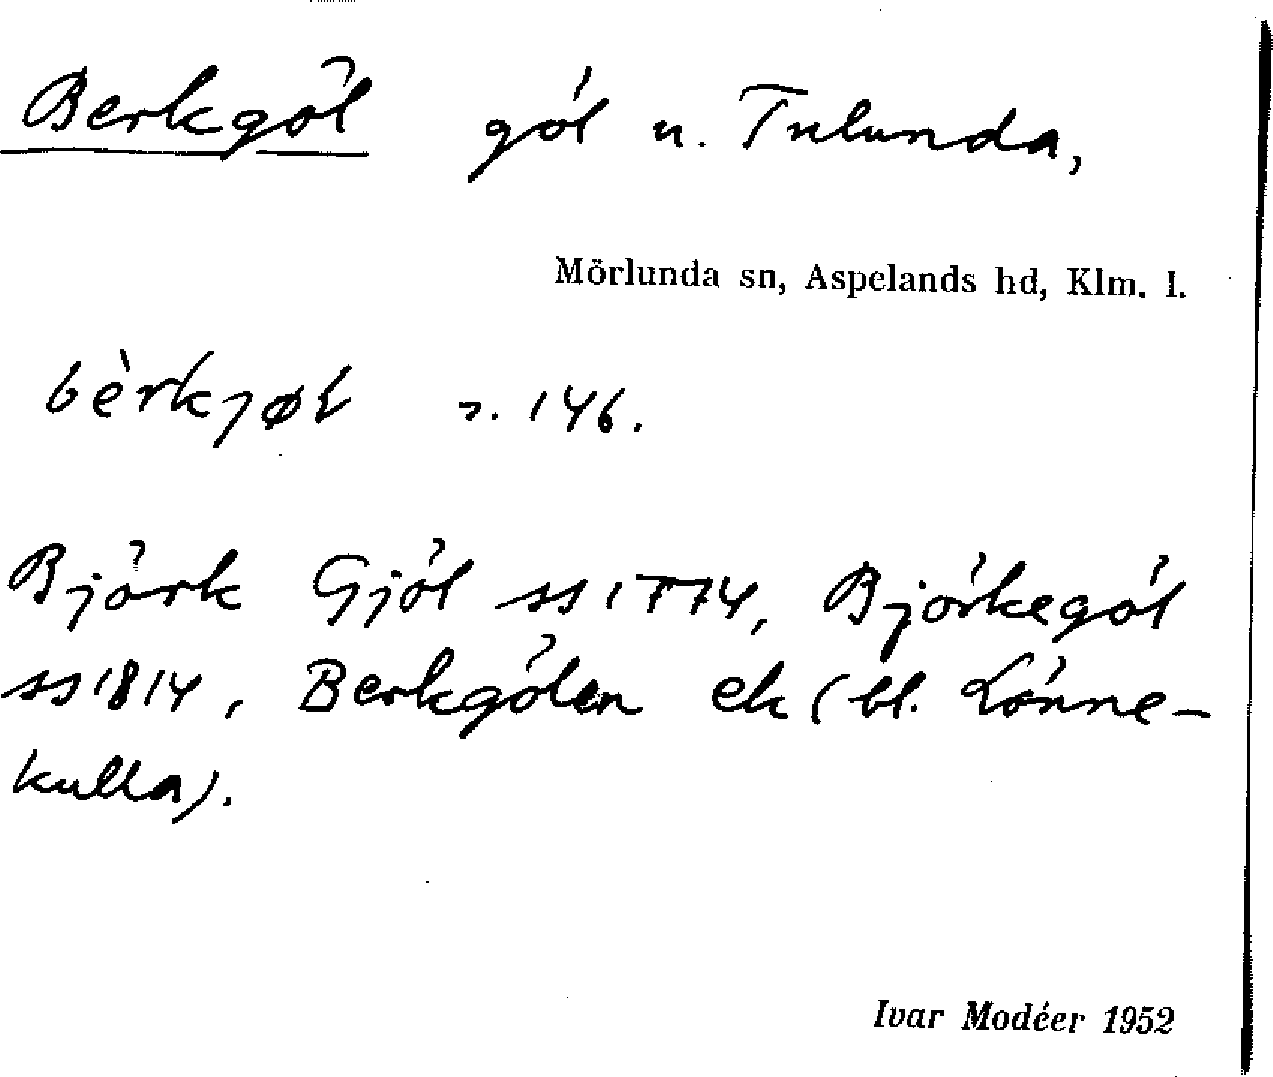 Berkgöl göl u. Tulunda,
Mörlunda sn, Aspelands hd, Klm. l.
bèrkjøl s. 146.
Björk Gjöl ss 1774, Björkegöl
ss 1814, Berkgölen ek (bl. Lönne-
kulla).
Ivar Modéer 1952